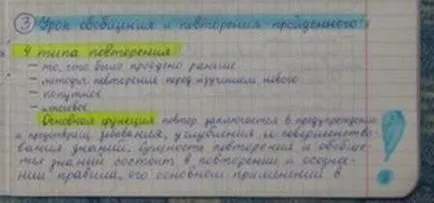 ③ Урок обобщения и повторения пройденного!
4 типа повторения
– то, что было пройдено раньше
– методы повторения перед изучением нового
– попутное
– итоговое
Основная функция повтор заключается в предупреждении
и предотвращ забывания, углубления и совершенство-
вания знаний. Сущность повторения и обобще-
ния знаний состоит в повторении и осозна-
нии правила, его основном применении в